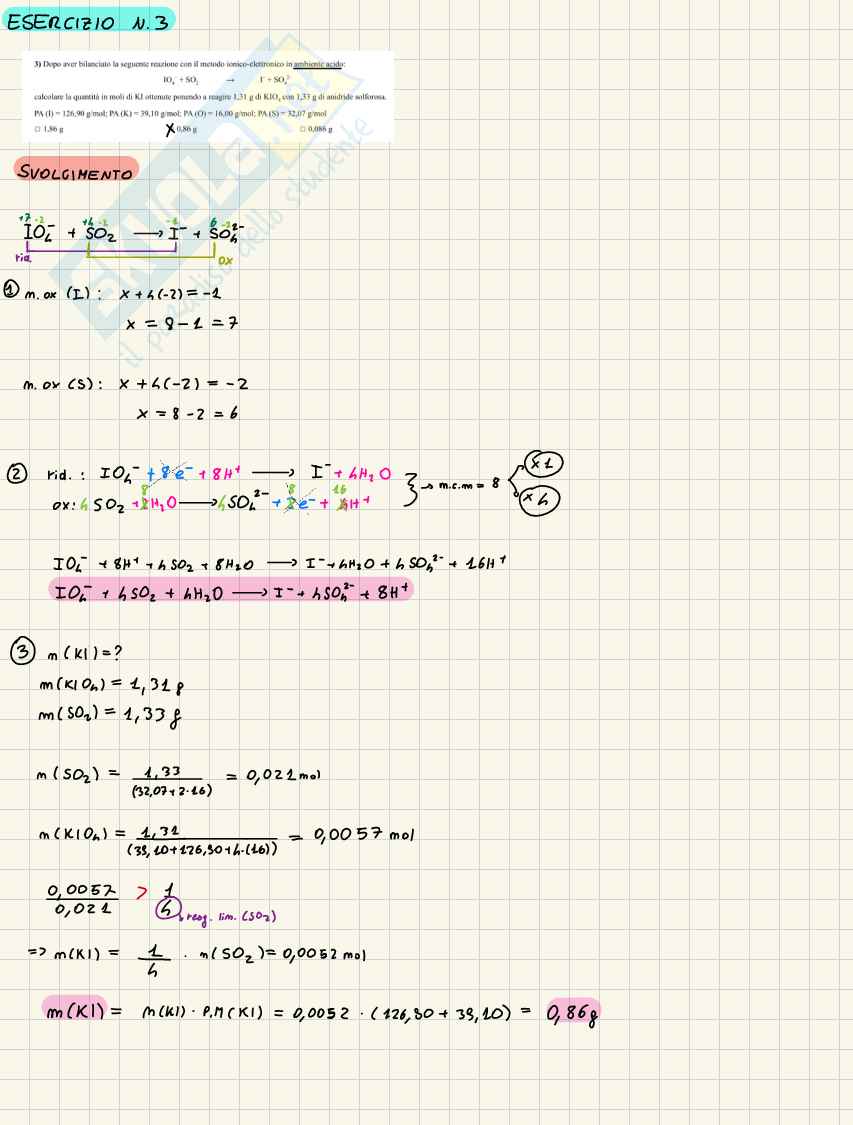 ESERCIZIO N.3
3) Dopo aver bilanciato la seguente reazione con il metodo ionico-elettronico in ambiente acido:
IO₄⁻ + SO₂ → I⁻ + SO₄²⁻
calcolare la quantità in moli di KI ottenute ponendo a reagire 1,31 g di KIO₄ con 1,33 g di anidride solforosa.
PA (I) = 126,90 g/mol; PA (K) = 39,10 g/mol; PA (O) = 16,00 g/mol; PA (S) = 32,07 g/mol
□ 1,86 g X 0,86 g □ 0,086 g
SVOLGIMENTO
+7 -2 +4 -2 -1 6 -2
IO₄⁻ + SO₂ → I⁻ + SO₄²⁻
rid. ox
① m. ox (I) : x + 4(-2) = -1
x = 8 - 1 = 7
m. ox (S) : x + 4(-2) = -2
x = 8 - 2 = 6
② rid. : IO₄⁻ + 8e⁻ + 8H⁺ → I⁻ + 4H₂O
8 8 16
ox: 4 SO₂ + 2H₂O → 4 SO₄²⁻ + 2e⁻ + 4H⁺ } → m.c.m = 8 x1 x4
IO₄⁻ + 8H⁺ + 4SO₂ + 8H₂O → I⁻ + 4H₂O + 4SO₄²⁻ + 16H⁺
IO₄⁻ + 4SO₂ + 4H₂O → I⁻ + 4SO₄²⁻ + 8H⁺
③ m(KI) = ?
m(KIO₄) = 1,31 g
m(SO₂) = 1,33 g
n(SO₂) = 1,33 / (32,07 + 2·16) = 0,021 mol
n(KIO₄) = 1,31 / (39,10 + 126,90 + 4·(16)) = 0,0057 mol
0,0057 / 0,021 > 1 / 4 reag. lim. (SO₂)
=> n(KI) = 1 / 4 · n(SO₂) = 0,0052 mol
m(KI) = n(KI) · P.M(KI) = 0,0052 · (126,90 + 39,10) = 0,86 g
skuola.net
il paradiso dello studente